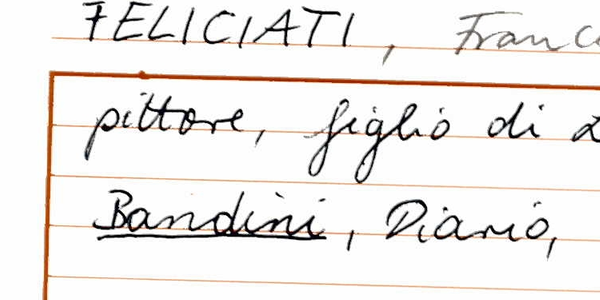 FELICIATI, Franc
pittore, figlio di
Bandini, Diario,